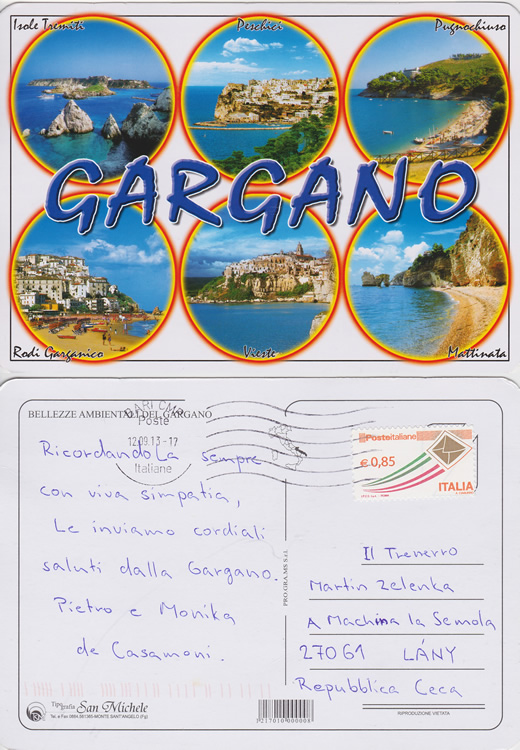 Isole Tremiti
Peschici
Pugnochiuso
GARGANO
Rodi Garganico
Vieste
Mattinata
BELLEZZE AMBIENTALI DEL GARGANO
BARI CMP
Poste
12.09.13-17
Italiane
Posteitaliane
€0,85
ITALIA
Ricordando La sempre
con viva simpatia,
Le inviamo cordiali
saluti dalla Gargano.
Pietro e Monika
de Casamoni.
PRO.GRA.MS S.r.l.
Il Trenerro
Martin Zelenka
A Machina la Semola
27061 LÁNY
Repubblica Ceca
Tipografia San Michele
Tel. e Fax 0884.561365-MONTE SANT'ANGELO (Fg)
3217010000008
RIPRODUZIONE VIETATA